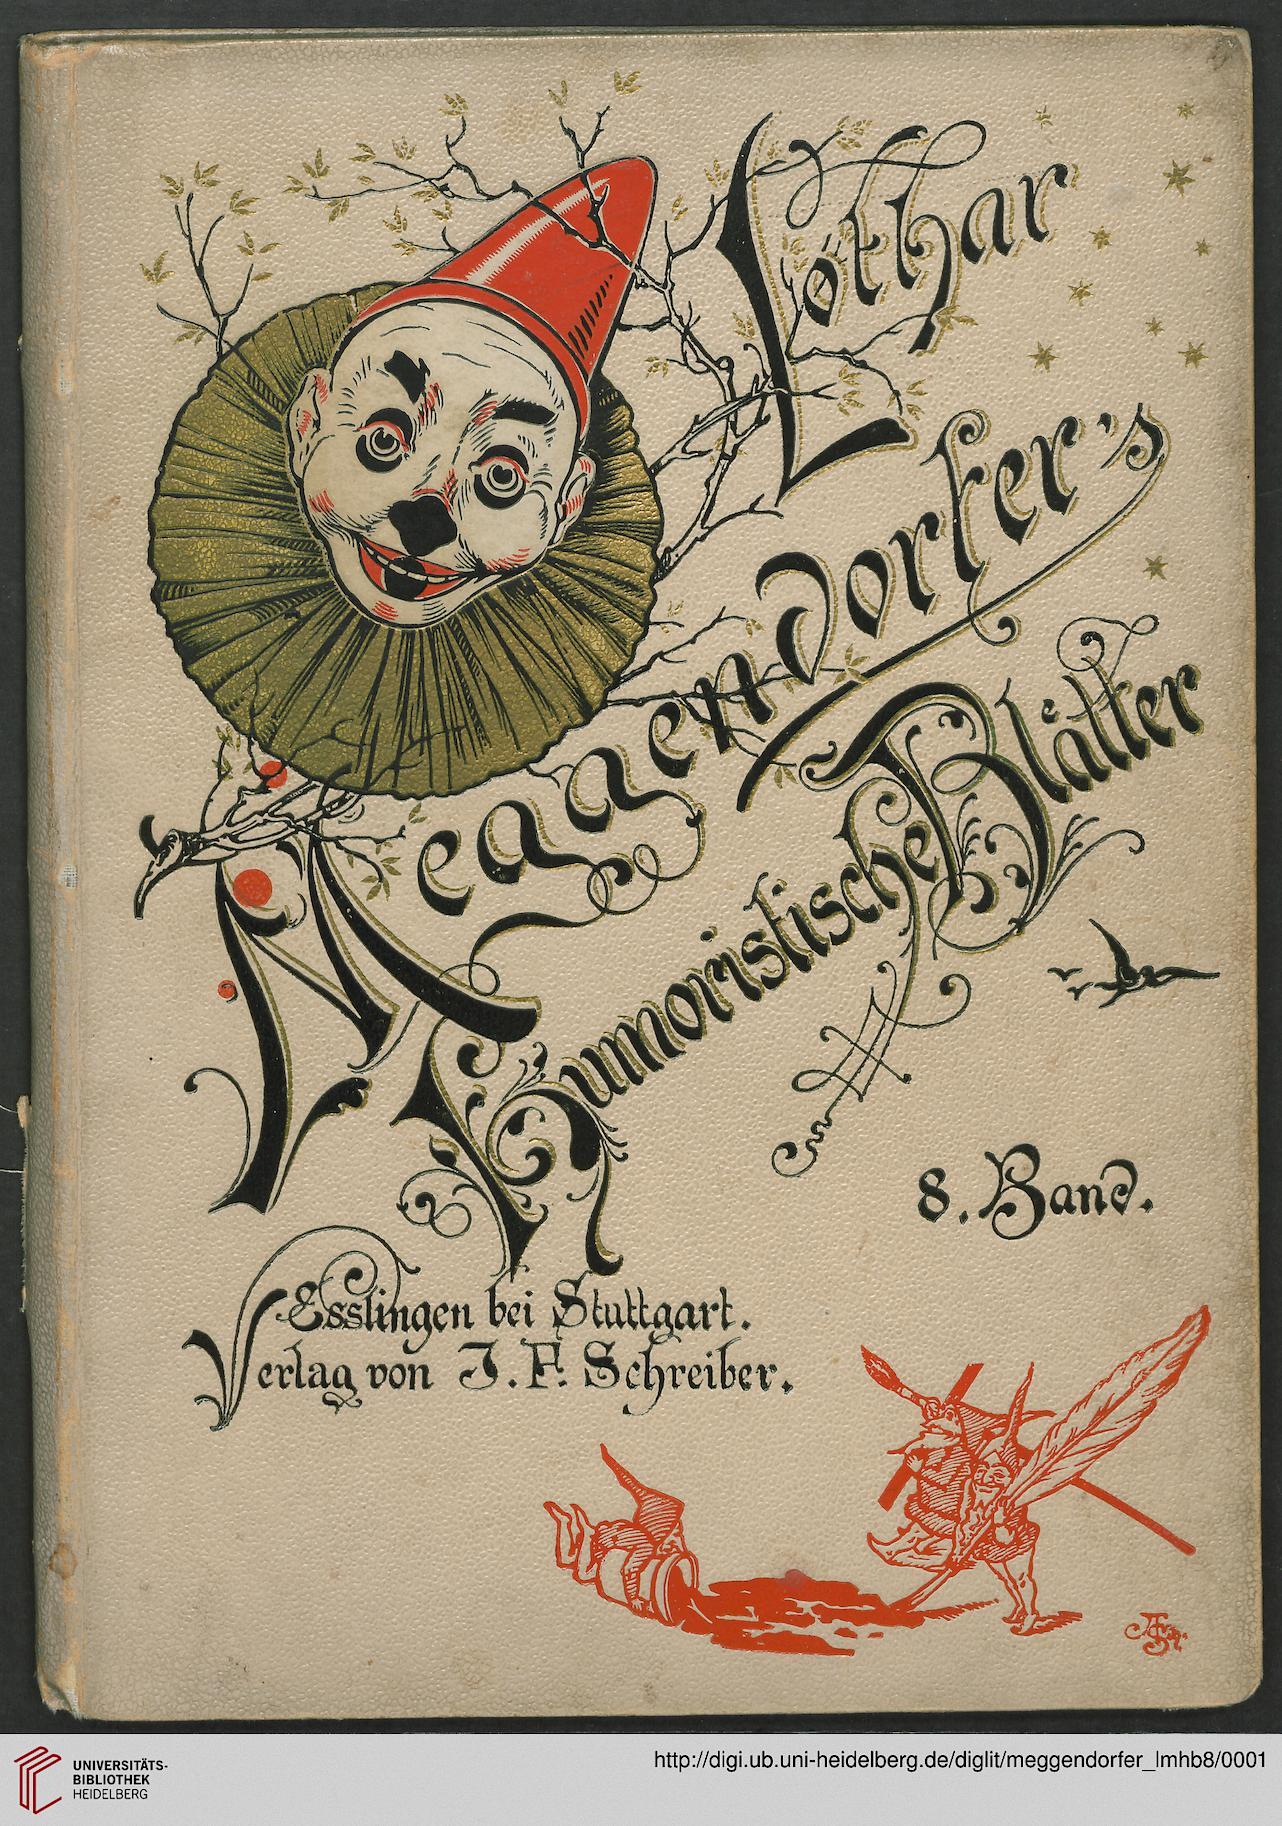 Lothar
Meggendorfer's
Humoristische Blätter
8. Band.
Esslingen bei Stuttgart.
Verlag von J. F. Schreiber.
UNIVERSITÄTS-
BIBLIOTHEK
HEIDELBERG
http://digi.ub.uni-heidelberg.de/diglit/meggendorfer_lmhb8/0001